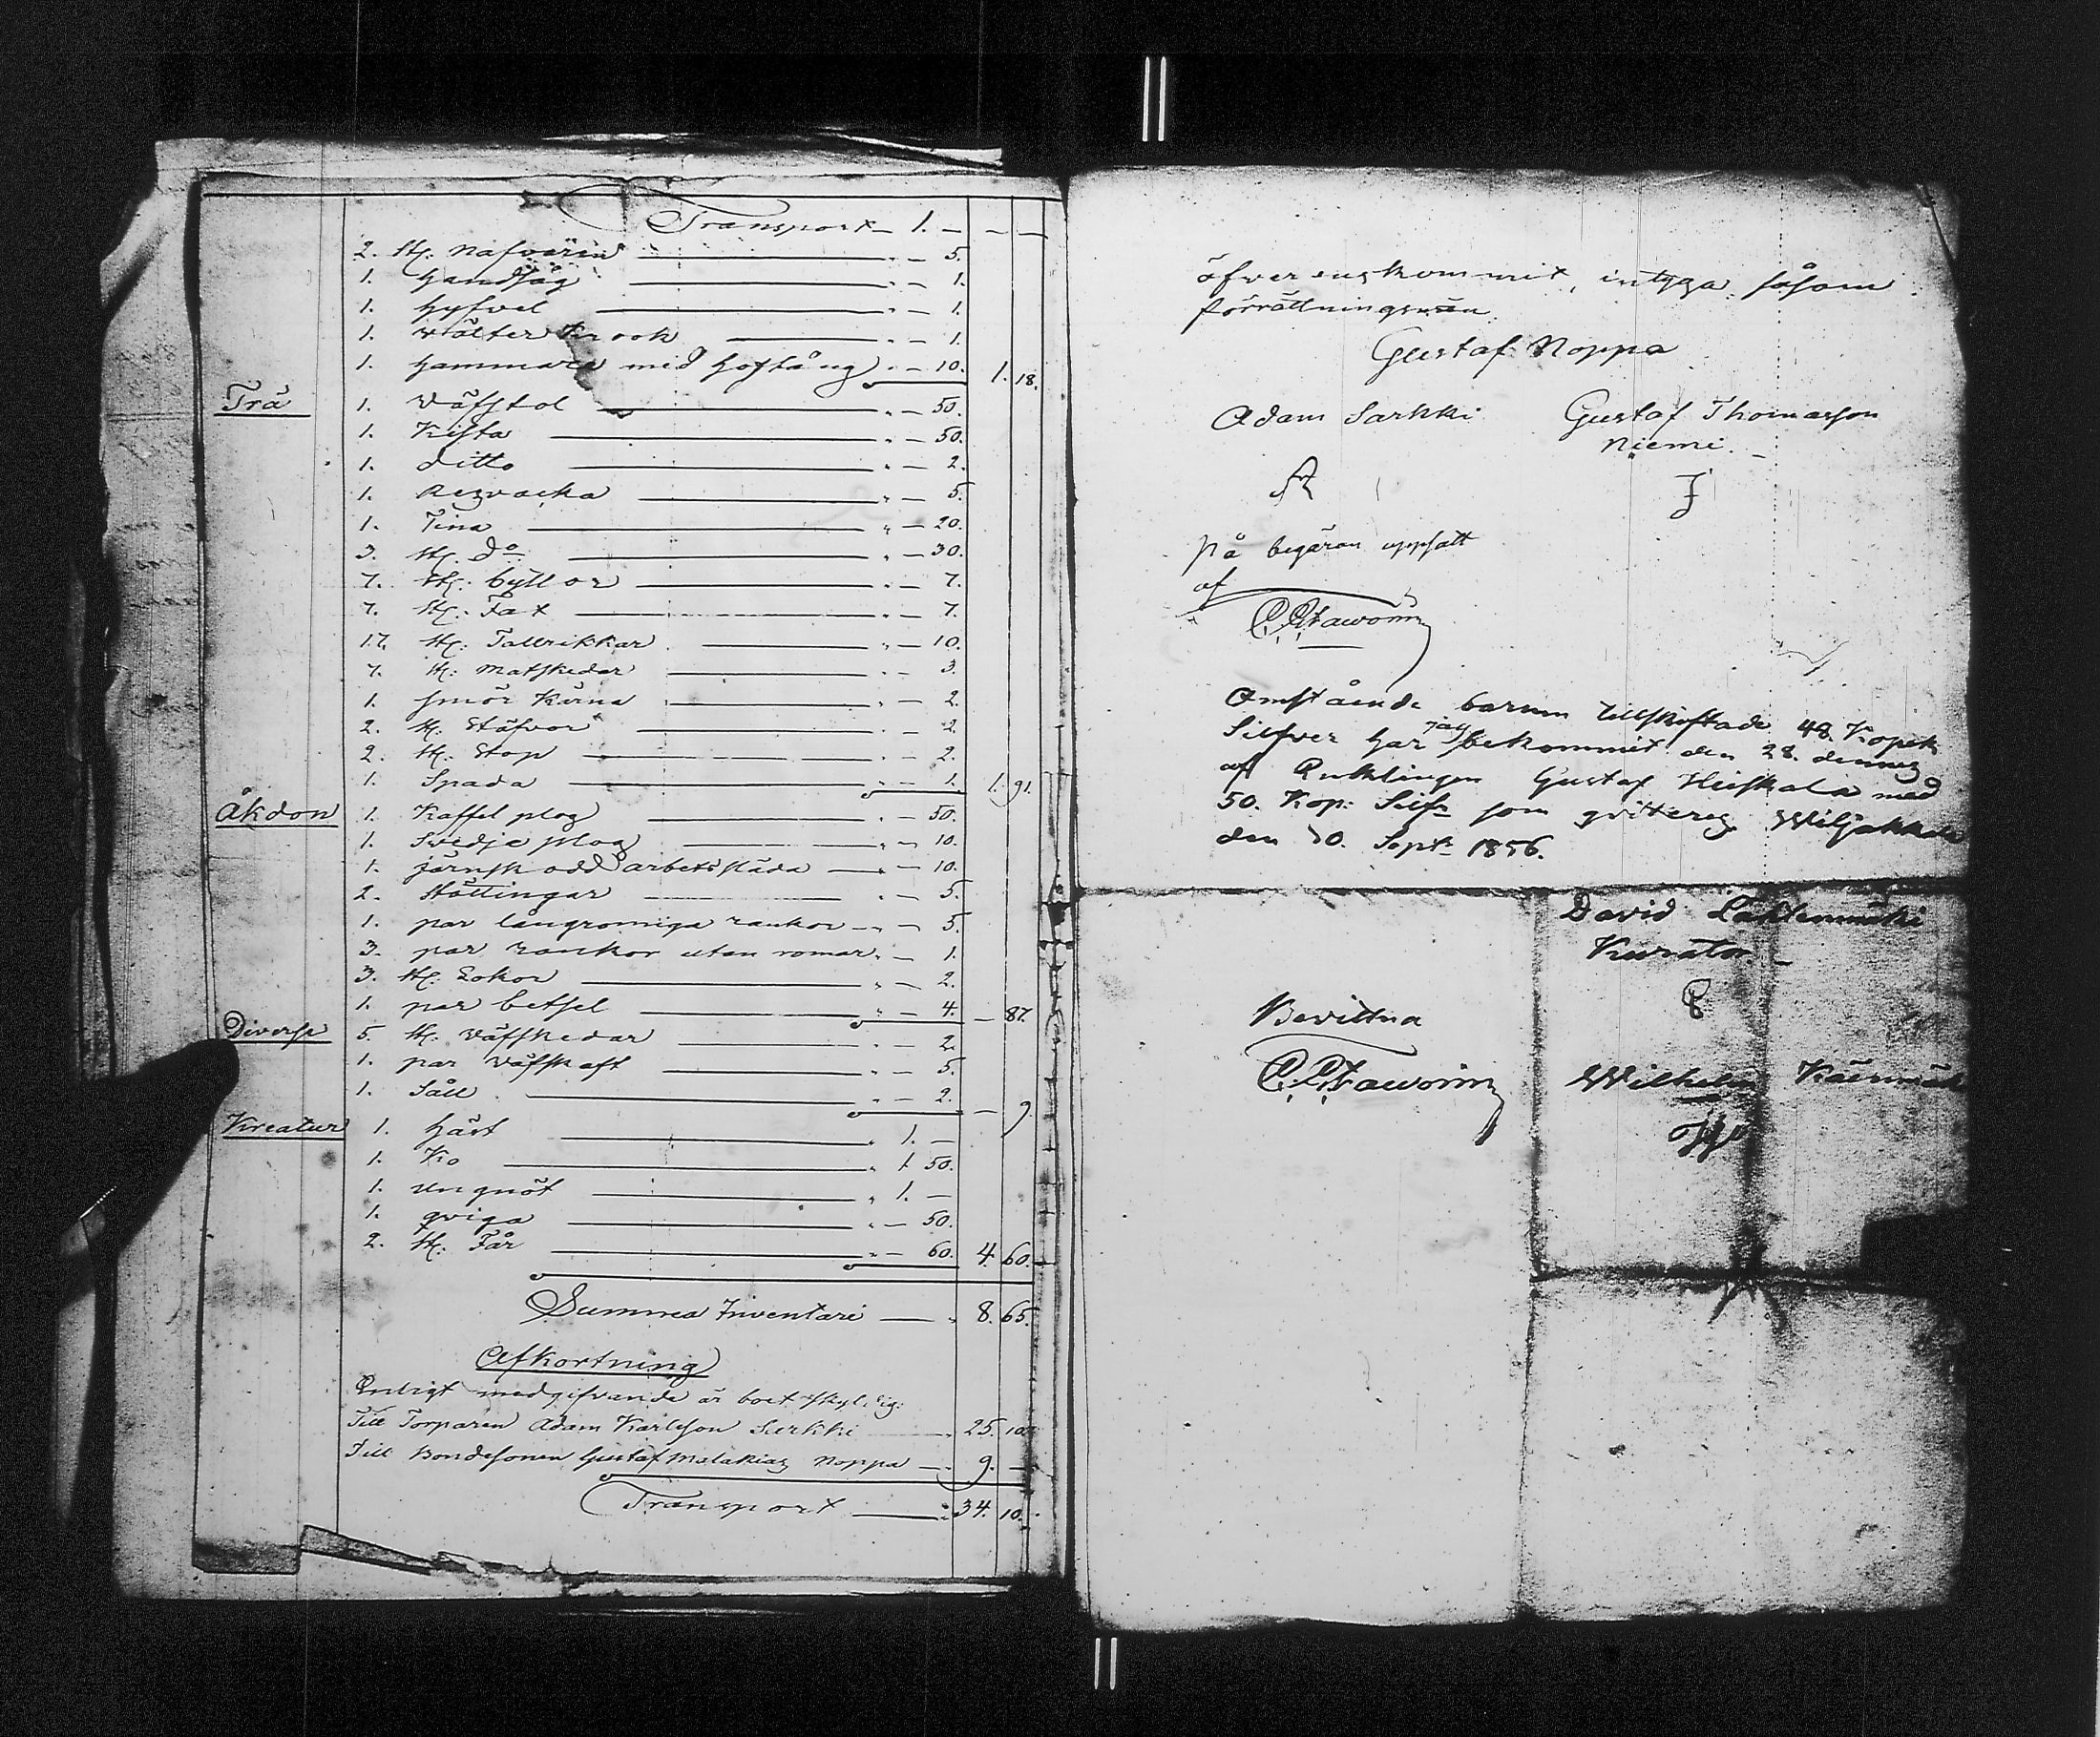 Transport — 1. — — —
2. st: Nafvarin " — 5.
1. Handsåg " — 1.
1. Hyfvel " — 1.
1. Krook " — 1.
1. Hammare med Hoftång " — 10. 1. 18.
Trä 1. Väfstol " — 50.
1. Kista " — 50.
1. ditto " — 2.
1. " — 5.
1. Tina " — 20.
3. st. do " — 30.
7. st: byttor " — 7.
7. st: Fat " — 7.
17. st: Tallrikkar " — 10.
7. st: Matskedar " — 3.
1. smör Kärna " — 2.
2. st: Stäfvor " — 2.
2. st: Stop " — 2.
1. Spada " — 1. 1. 91.
Åkdon 1. Kaffel plog " — 50.
1. Svedje plog " — 10.
1. järnskodd arbetssläda " — 10.
2. Stöttingar " — 5.
1. par långromiga rankor " — 5.
3. par rankor utan romar " — 1.
3. st: Lokor " — 2.
1. par betsel " — 4. — 87.
Diverse 5. st: Väfskedar " — 2.
1. par Väfskaft " — 5.
1. Såll " — 2. — 9
Kreatur 1. Häst " 1. —
1. Ko " 1. 50.
1. ungnöt " 1. —
1. qviga " — 50.
2. st: Får " — 60. 4. 60.
Summa Inventari — " 8. 65.
Afkortning
Enligt medgifvande är boet skyldig:
Till Torparen Adam Karlsson Sarkki " 25. 10.
Till Bondesonen Gustaf Malakias Noppa — " 9. —
Transport — " 34. 10.
öfverenskommit, intyga såsom
förrättningsmän.
Gustaf Noppa
Adam Sarkki Gustaf Thomasson
Niemi.
På begäran uppsatt
af
Omstående barnen tillskiftade 48. Kopek
Silfver har jag bekommit den 28. dennes
af Enklingen Gustaf Heiskala med
50. Kop: Silfr som qviteras Wiljakkala
den 30. Sept: 1856.
David
Kurator.
Bevittna
Wilhelm